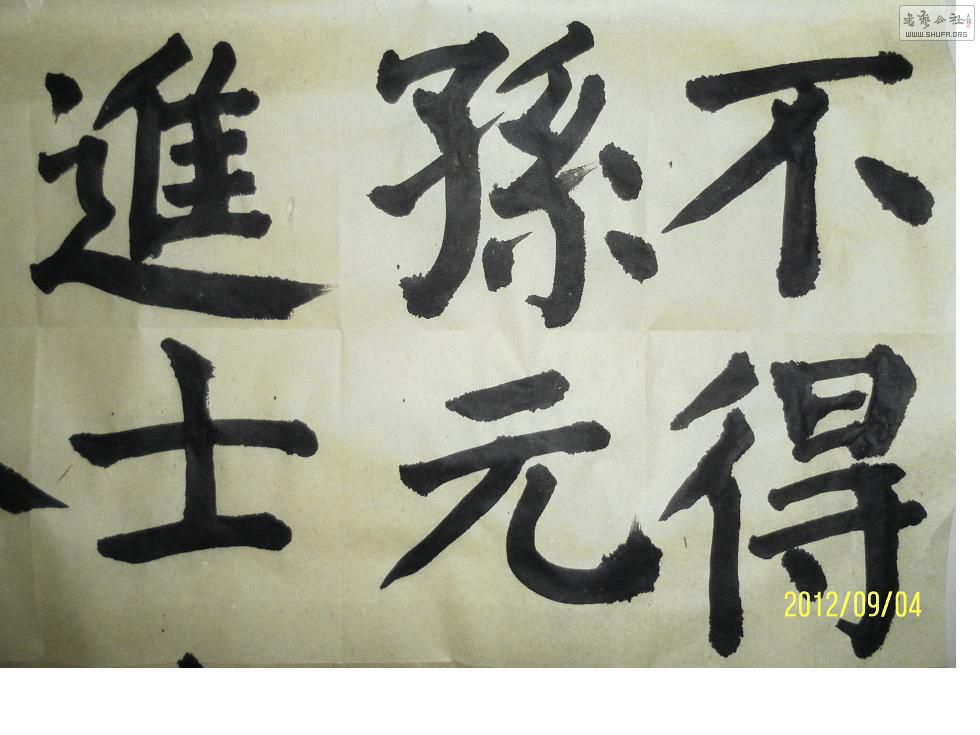 不得
孫元
進士
2012/09/04
書藝公社
WWW.SHUFA.ORG